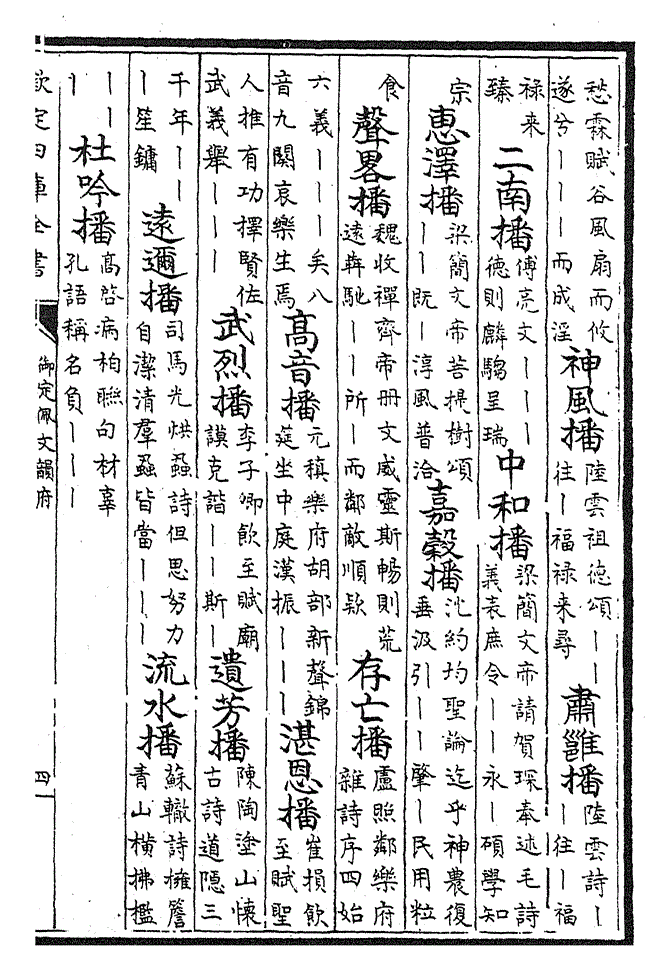 愁霖賦谷風扇而攸遂兮丨丨丨而成淫神風播陸雲祖徳頌丨丨往丨福禄来尋肅雝播陸雲詩丨丨往丨福
禄来臻二南播傅亮文丨丨丨徳則麟騶呈瑞中和播梁簡文帝請賀琛奉述毛詩義表庶令丨丨永丨碩學知
宗惠澤播梁簡文帝菩提樹頌丨丨既丨淳風普洽嘉穀播沈約均聖論迄乎神農復垂汲引丨丨肇丨民用粒
食聲畧播魏收禪齊帝冊文威靈斯暢則荒遠奔馳丨丨所丨而鄰敵順款存亡播盧照鄰樂府雜詩序四始
六義丨丨丨矣八音九闋哀樂生焉高音播元稹樂府胡部新聲錦筵坐中庭漢振丨丨丨湛恩播崔損飲至賦聖
人推有功擇賢佐武義舉丨丨丨武烈播李子卿飲至賦廟謨克諧丨丨斯丨遺芳播陳陶塗山懷古詩道隱三
千年丨丨丨笙鏞遠邇播司馬光烘蝨詩但思努力自潔清羣蝨皆當丨丨丨流水播蘇轍詩擁簷青山横拂檻
丨丨丨杜吟播高啓病柏聯句材辜孔語稱名負丨丨丨
欽定四庫全書
御定佩文韻府
四